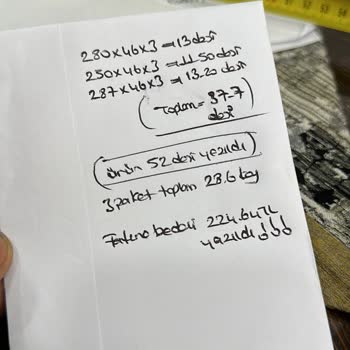 280x46x3 → 13 desi
250x46x3 → 11.50 desi
287x46x3 → 13.20 desi
Toplam = 37.7
desi
ürün 52 desi yazıldı
3 paket toplam 23.6 kg
Fatura bedeli 224.64TL
yazıldı !!!